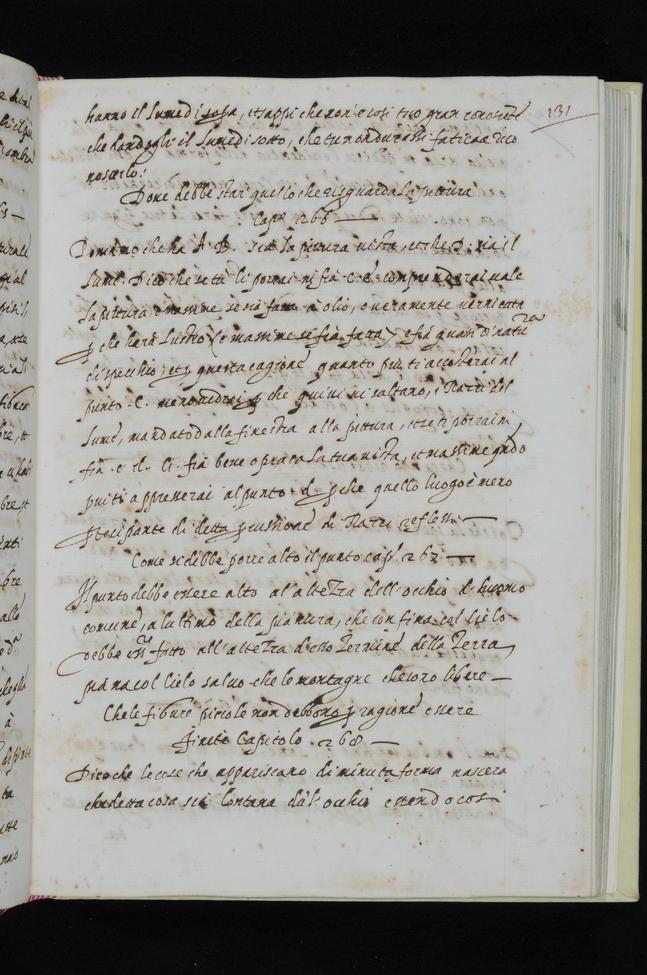 131
hanno il lume di sopra, et sappi che non è così tuo gran conoscente
che dandogli il lume di sotto, che tu non duri fatica a rico
noscerlo:
Dove debbe star quello che risguarda la pittura
Cap° 266
Poniamo che A B. sia la pittura vista, et che D. sia il
lume. Dico che se tti porrai infra C. E comprenderai male
la pittura, e massime se sia fatta a olio, o veramente vernicata
p che harà lustro (e massime se fia fatta) e fia quasi di natura
di specchio, et p questa cagione quanto piu ti accosterai al
punto C. meno vedrai p che quivi risaltano, i Razzi del
lume, mandato dalla finestra alla pittura, et se ti porrai in
fra E et D. li fia bene operata la tua vista, et massime qndo
piu ti appresserai al punto d p che quello luogo è meno
pticipante di detta pcussione di Razzi reflessi
Come si debbe porre alto il punto cap°. 267
Il punto debbe essere alto al altezza dell occhio d huomo
comune, a lultimo della pianura, che confina col cielo
debbe ess fatto all altezza d'esso termine della terra
piana col cielo salvo che le montagne che loro libere
Che le figure piccole non debbono p ragione essere
finite Capitolo. 268
Dico che le cose che appariscano di minuta forma nascera
che detta cosa sia lontana dal occhio essendo cosi